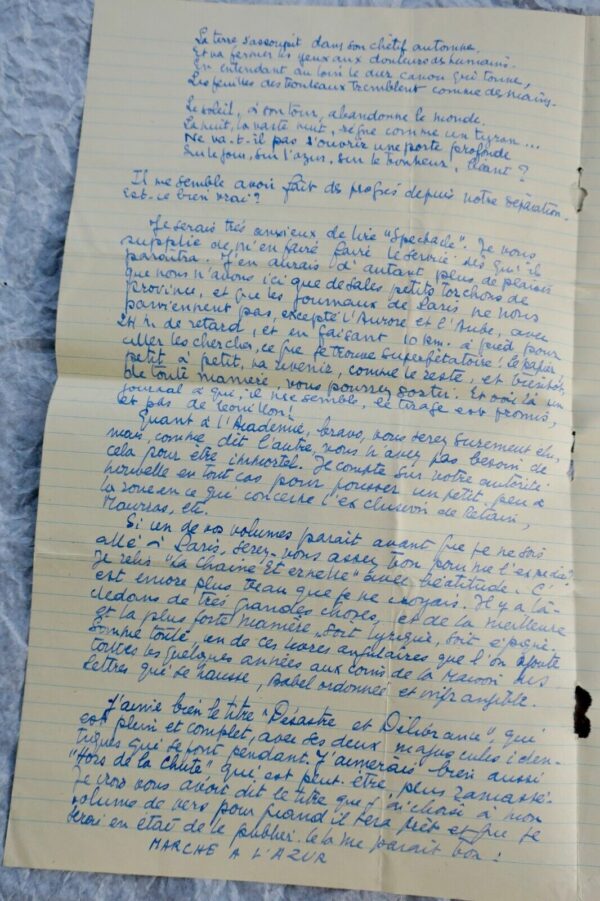 La terre s'assoupit dans son chétif automne.
Et va fermer les yeux aux douleurs des humains.
En entendant au loin le dur canon qui tonne,
Les feuilles des rameaux tremblent comme des mains.
Le soleil, à son tour, abandonne le monde.
La nuit, la vaste nuit, règne comme un tyran...
Ne va-t-il pas s'ouvrir une porte profonde
Sur le jour, sur l'azur, sur le bonheur, béant ?
Il me semble avoir fait des progrès depuis notre séparation.
Est-ce bien vrai ?
Je serais très anxieux de lire "Spectacle". Je vous
supplie de m'en faire faire le service dès qu'il
paraîtra. J'en aurais d'autant plus de plaisir
que nous n'avons ici que de sales petits torchons de
province, et que les journaux de Paris ne nous
parviennent pas, excepté l'Aurore et l'Aube, avec
24 h. de retard, et en faisant 10 km. à pied pour
aller les chercher, ce que je trouve superfétatoire ! Le papier
petit à petit, va revenir, comme le reste, et bientôt,
de toute manière, vous pourrez sortir. Et voilà un
journal à qui, il me semble, le tirage est promis,
et pas de
Quant à l'Académie, bravo, vous serez sûrement élu,
mais, comme dit l'autre, vous n'avez pas besoin de
cela pour être immortel. Je compte sur votre autorité
nouvelle en tout cas pour pousser un petit peu à
la roue en ce qui concerne l'exclusion de Pétain,
Maurras, etc.
Si un de vos volumes paraît avant que je ne sois
allé à Paris, serez-vous assez bon pour me l'expédier ?
Je relis "La Chaîne Eternelle" avec béatitude. C'
est encore plus beau que je ne croyais. Il y a là-
dedans de très grandes choses, et de la meilleure
et la plus forte manière, soit lyrique, soit épique.
Somme toute, un de ces livres angulaires que l'on ajoute
toutes les quelques années aux coins de la Maison des
Lettres qui se hausse, Babel ordonnée et infrangible.
J'aime bien le titre "Désastre et Délivrance", qui
est plein et complet, avec ses deux majuscules iden-
tiques qui se font pendant. J'aimerais bien aussi
"Hors de la Chute" qui est peut-être plus ramassé.
Je crois vous avoir dit le titre que j'ai choisi à mon
volume de vers pour quand il sera prêt et que je
serai en état de le publier. Cela me paraît bon :
MARCHE A L'AZUR